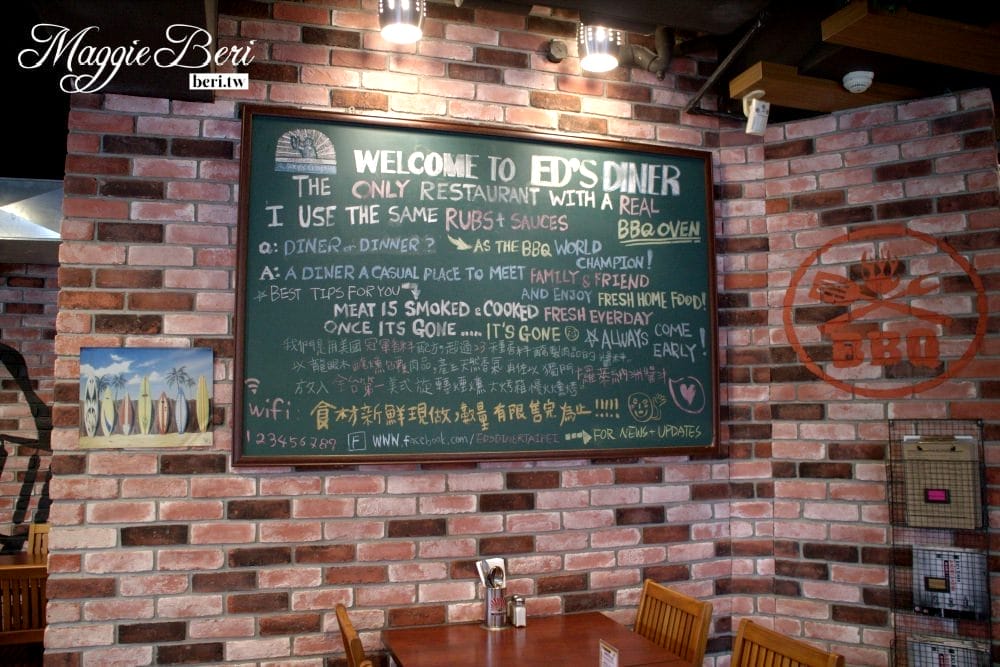 Maggie Beri
beri.tw
WELCOME TO ED'S DINER
THE ONLY RESTAURANT WITH A REAL
BBQ OVEN
I USE THE SAME RUBS + SAUCES
AS THE BBQ WORLD
CHAMPION!
Q: DINER or DINNER?
A: A DINER A CASUAL PLACE TO MEET FAMILY & FRIEND
AND ENJOY FRESH HOME FOOD!
BEST TIPS FOR YOU
MEAT IS SMOKED & COOKED FRESH EVERDAY
ONCE ITS GONE ..... IT'S GONE
ALWAYS COME
EARLY!
我們是用美國冠軍
wifi:
食材新鮮現做,數量有限售完為止!!!!!
123456789
WWW.facebook.com/EDSDINERTAIPEI
FOR NEWS + UPDATES
BBQ